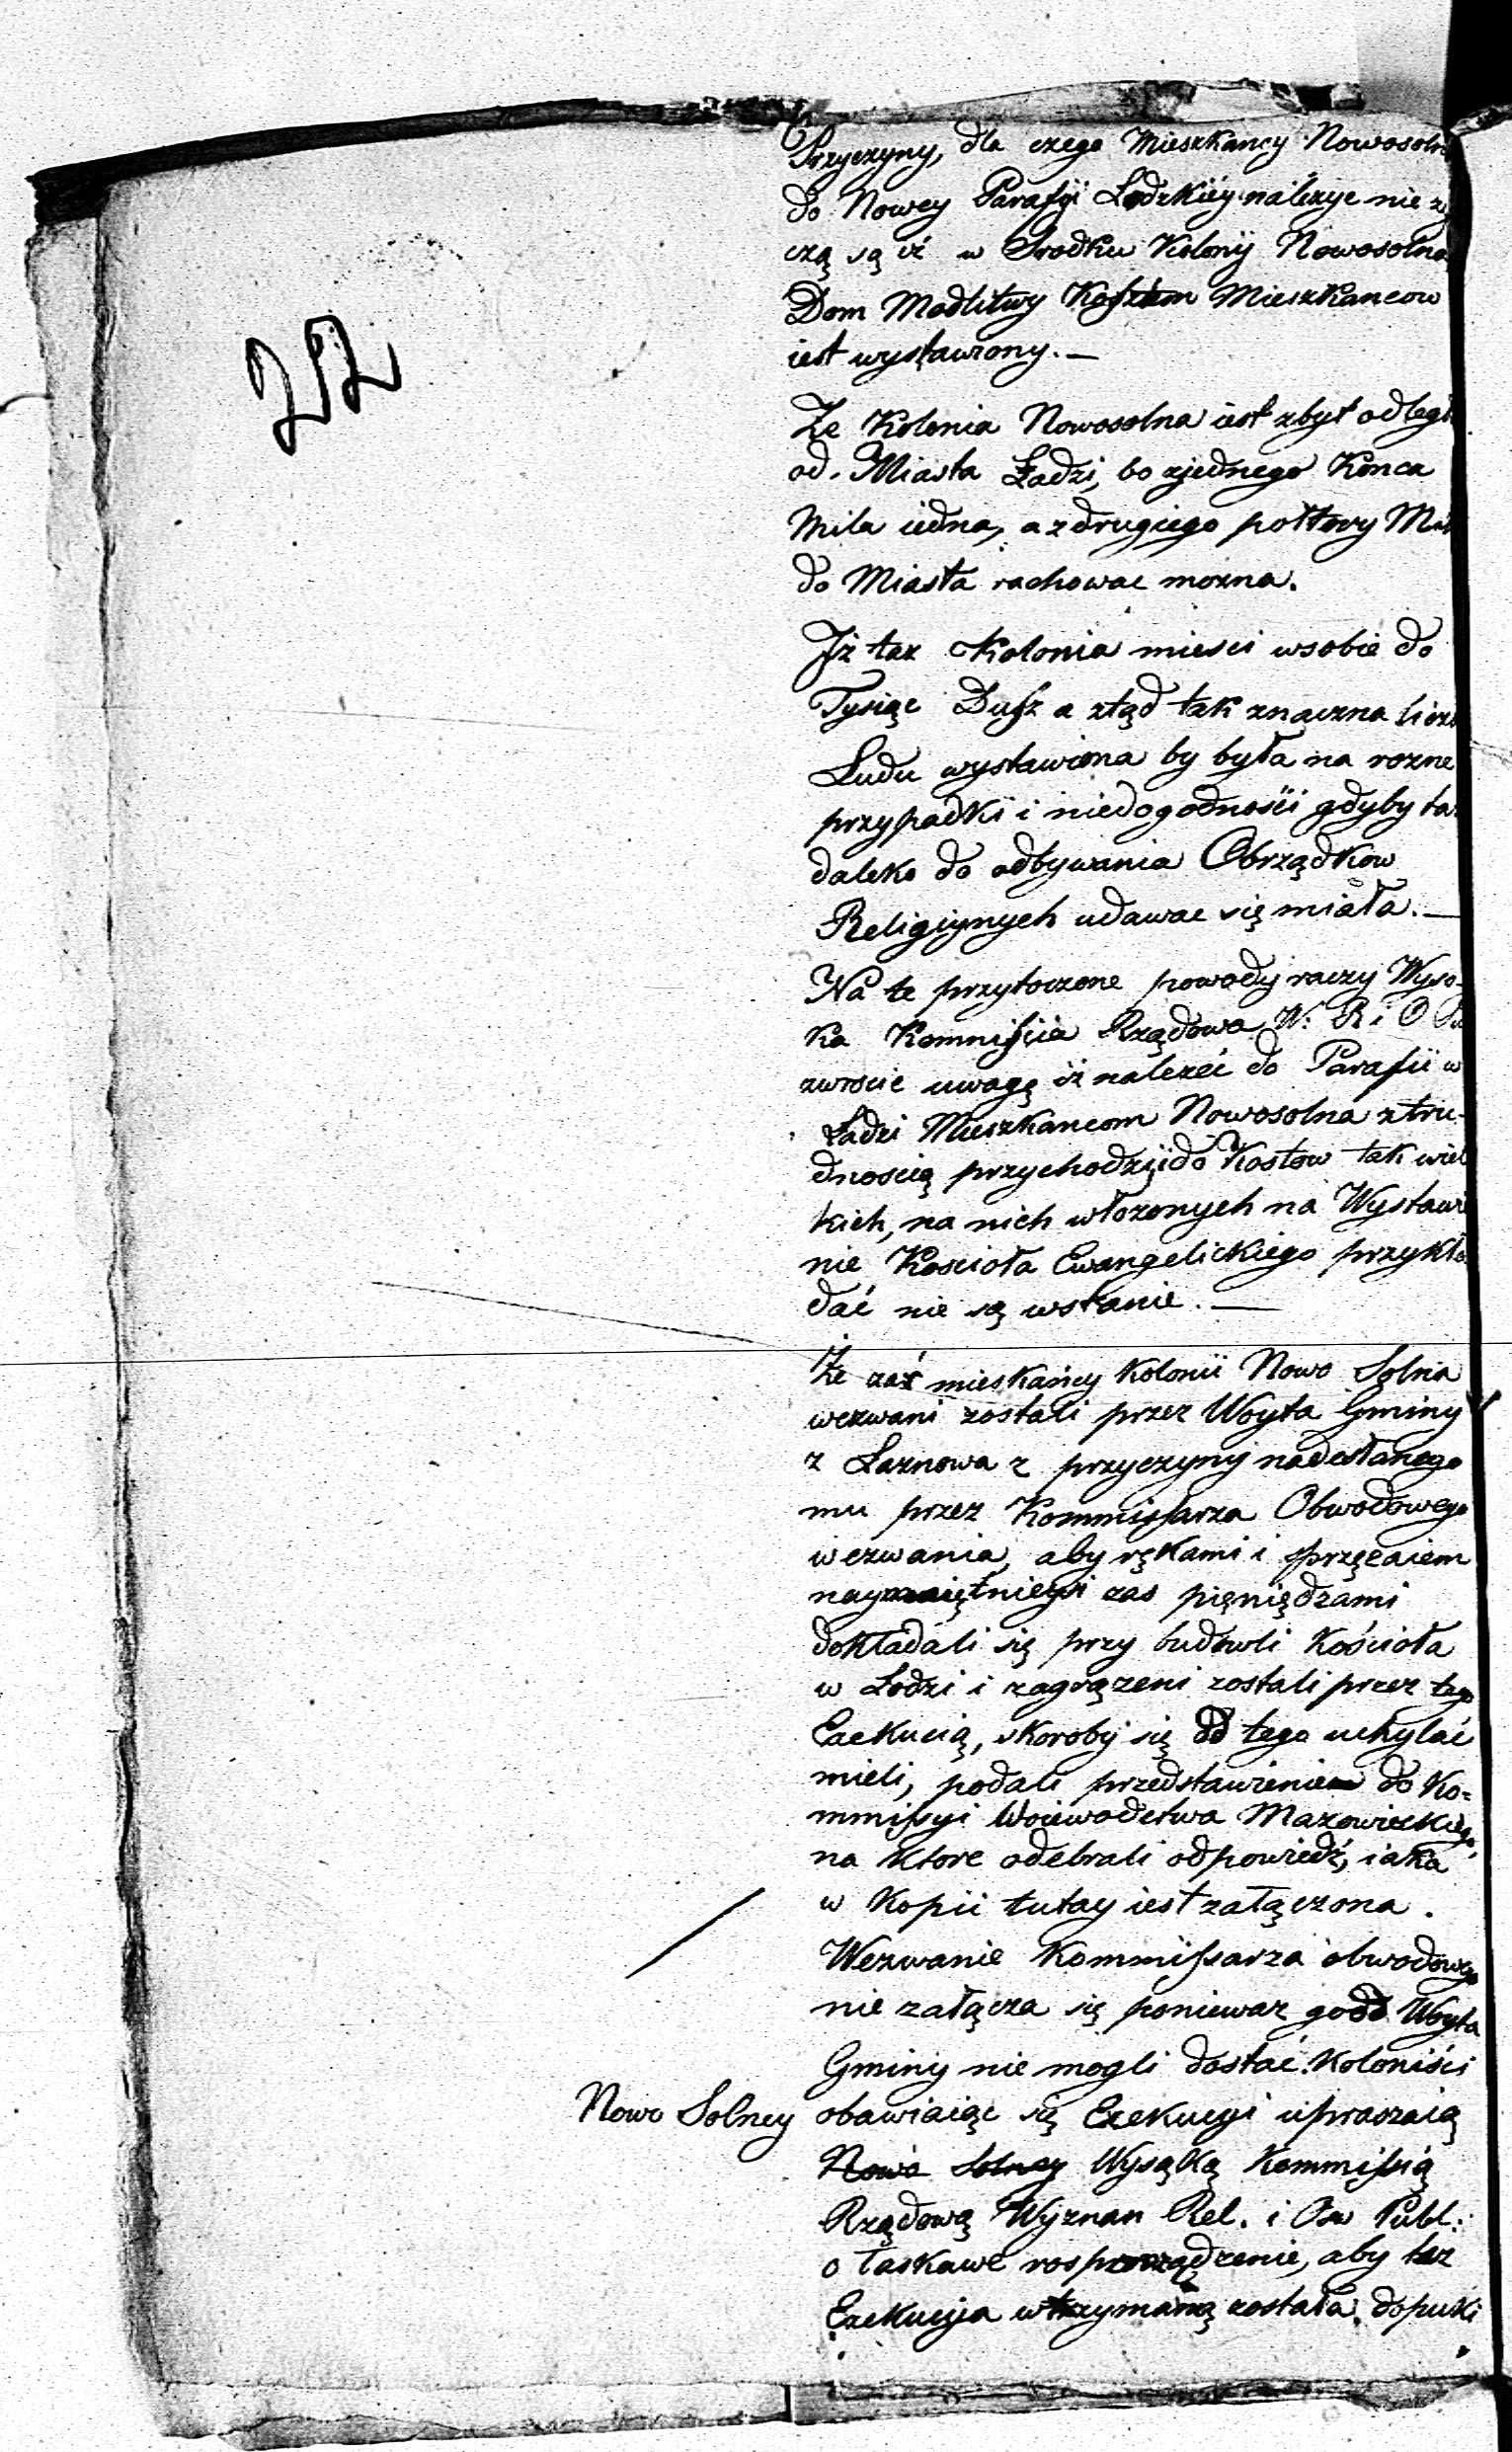 Przyczyny, dla czego Mieszkancy Nowosolna
do Nowey Parafyi Lodzkiéy nalézyc nie zy
czą są iż w Srodku Kolonij Nowosolna
Dom Modlitwy Kosztem Mieszkancow
iest wystawiony. —
22
Ze Kolonia Nowosolna iest zbyt odległ
od Miasta Łodzi, bo zjednego Konca
Mila iedna, a z drugiego połtory Mil
do Miasta rachowac mozna.
Iż taz Kolonia miesci wsobie do
Tysiąc Dusz a ztąd tak znaczna licz
Ludu wystawiona by była na rozne
przypadki i niedogodnosci gdyby ta
daleko do odbywania Obrządkow
Religiynych udawac się miała. —
Na te przytoczone powody raczy Wyso-
ka Kommissia Rządowa W: R i O Pu
zwrocic uwagę iż nalezéć do Parafii w
Łodzi Mieszkancom Nowosolna z tru-
dnoscią przychodzi i do Kosztow tak wiel
kich, na nich włozonych na Wystawie
nie Koscioła Ewangelickiego przykła
dać nie są wstanie. —
Że zaś mieskańcy Kolonii Nowo Solna
wezwani zostali przez Woyta Gminy
z Łaznowa z przyczyny nadesłanego
mu przez Kommissarza Obwodowego
wezwania, aby rękami i sprzęzaiem
zas pięniędzami
dokładali się przy budowli Kościoła
w Lodzi i zagrązeni zostali przez tego
Exekucią, skoroby się od tego uchylać
mieli, podali przedstawienie do Ko=
mmissyi Woiewodztwa Mazowieckiego,
na ktore odebrali odpowiedź, iaka
w Kopii tutay iest załączona.
Wezwanie Kommissarza obwodowego
nie załącza się poniewaz go od Woyta
Gminy nie mogli dostać. Koloniści
Nowo Solney obawiaiąc się Exekucyi upraszaią
Nowo Solney Wysąką Kommissią
Rządową Wyznan Rel. i Osw Publ:
o łaskawe rosporządzenie, aby też
Exekucyia wtrzymaną została, dopuki